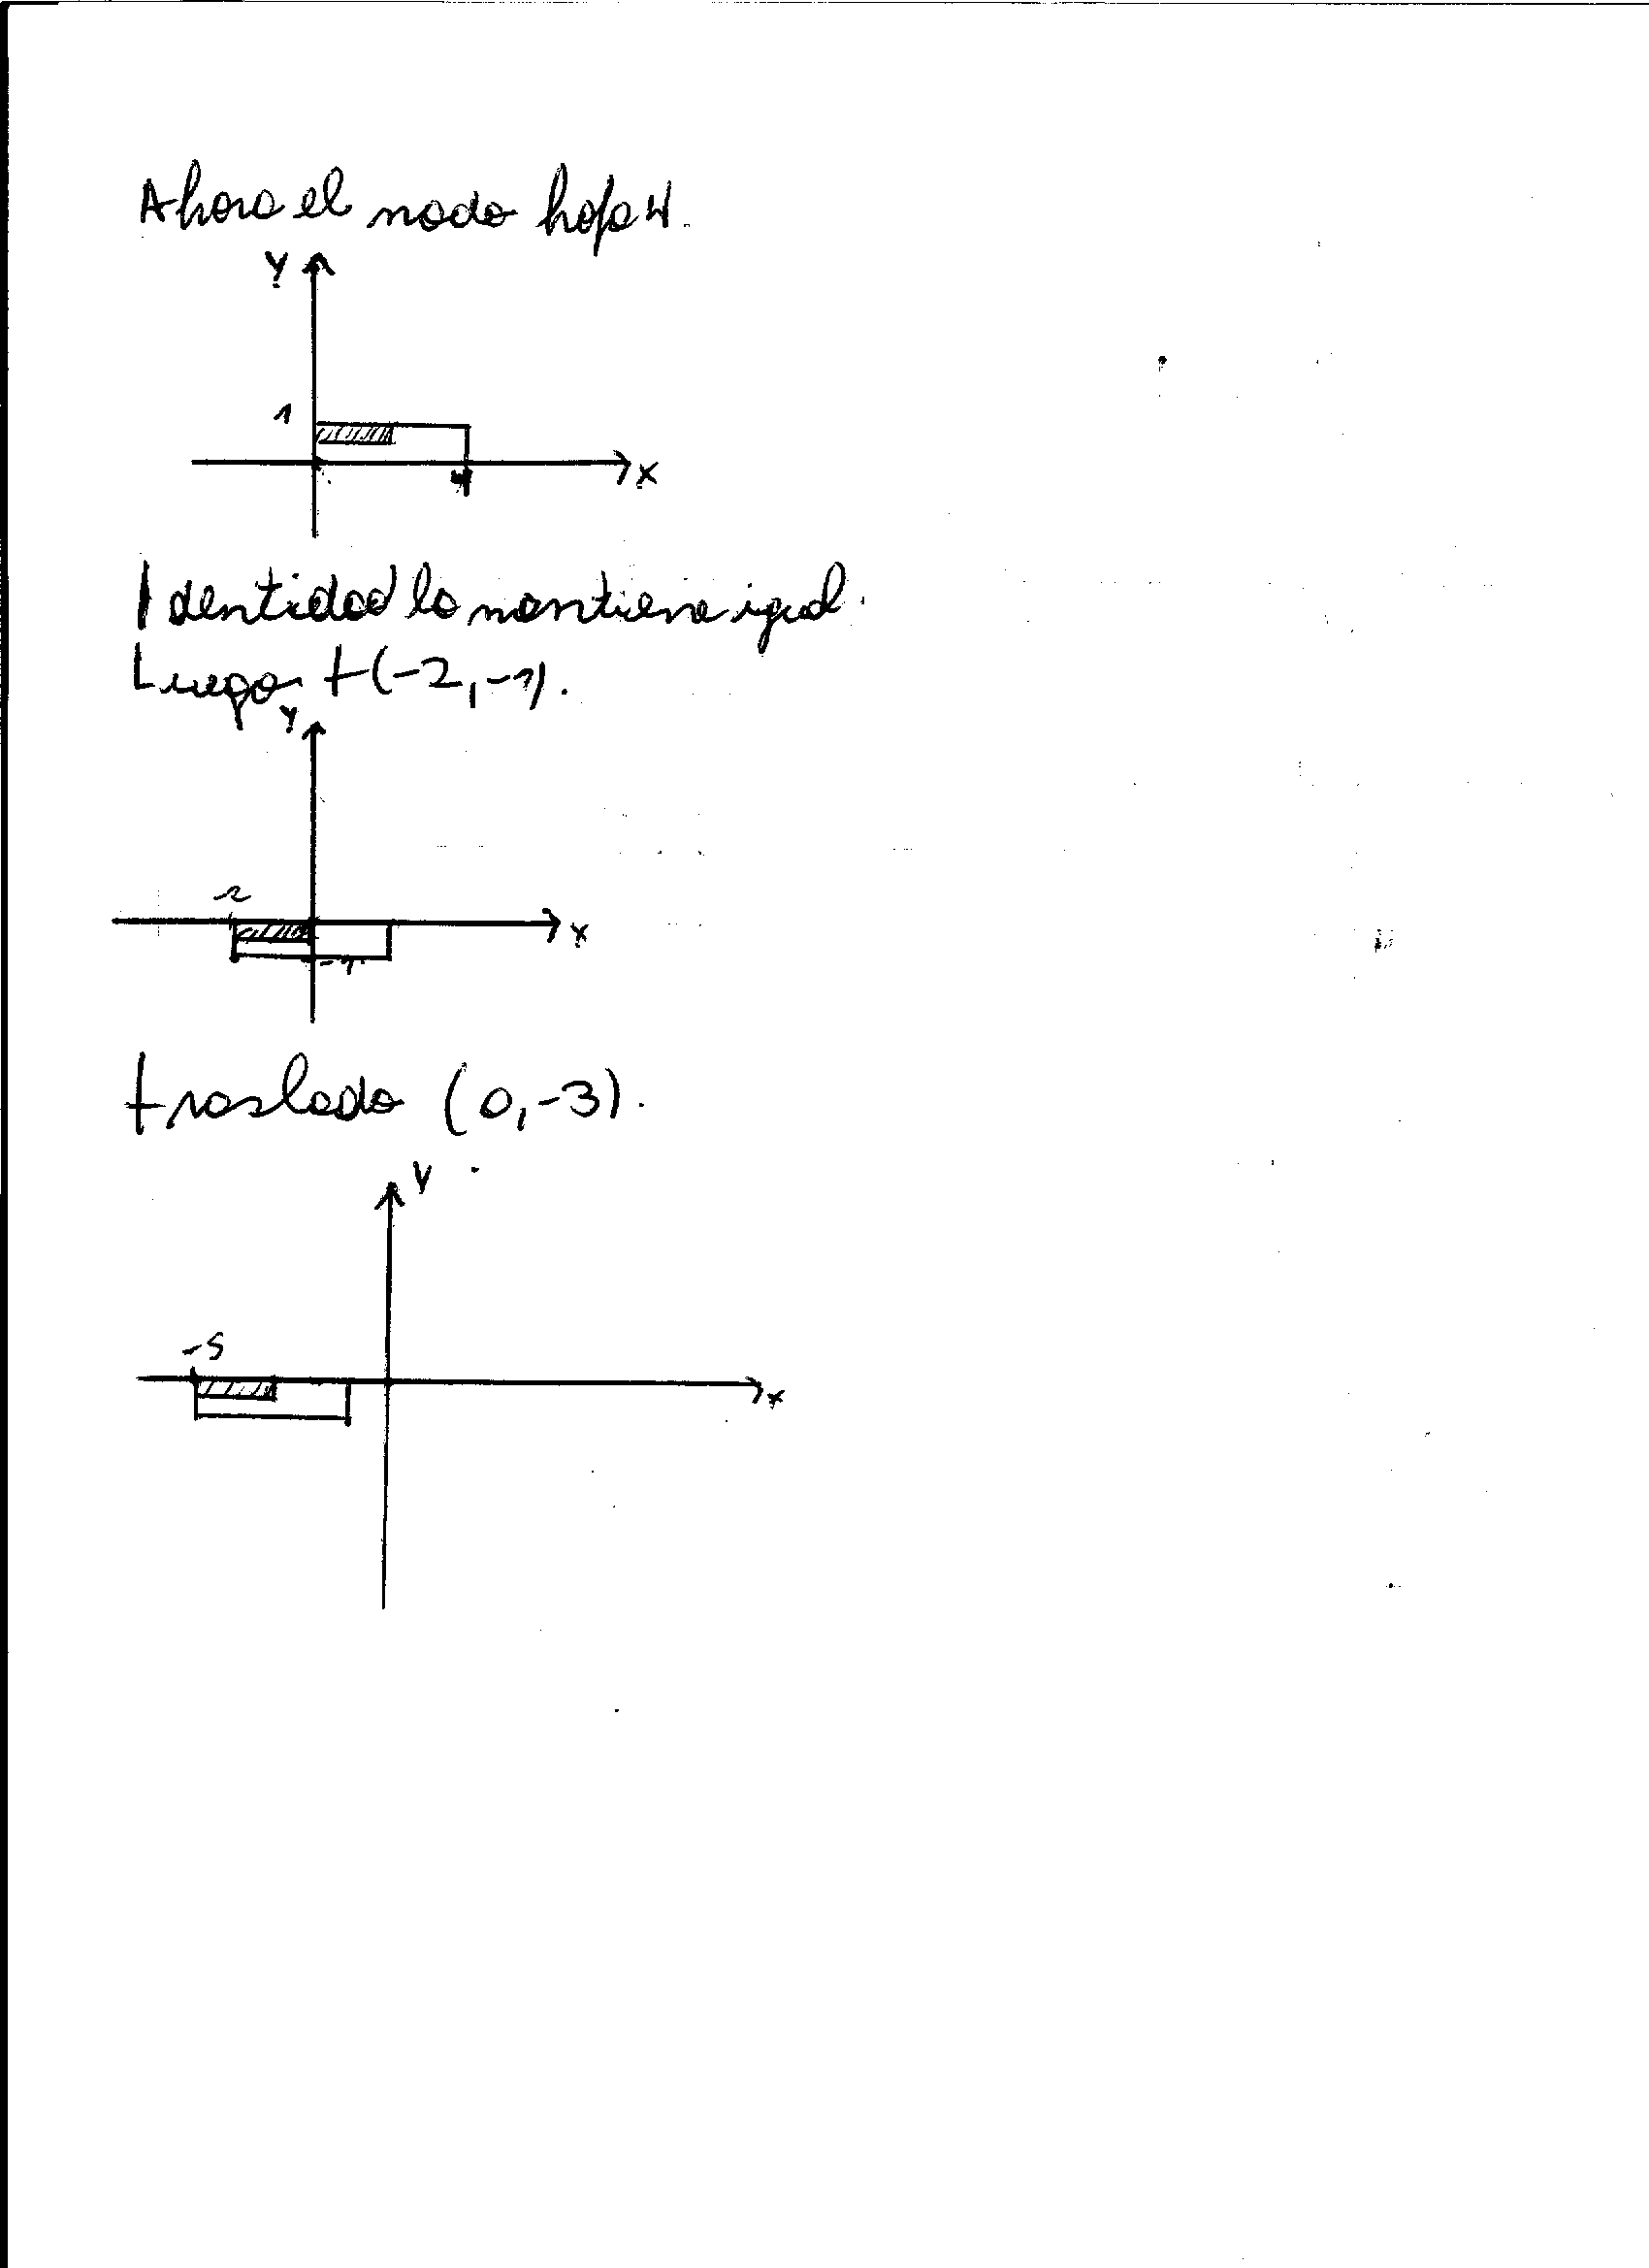 Ahora el nodo hoja 4.
Y
1
4
X
Identidad lo mantiene igual.
Luego t(-2,-1).
Y
-2
X
-1
traslado (0,-3).
Y
-5
X